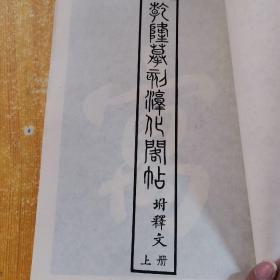 乾隆摹刻淳化閣帖
坿釋文
上册